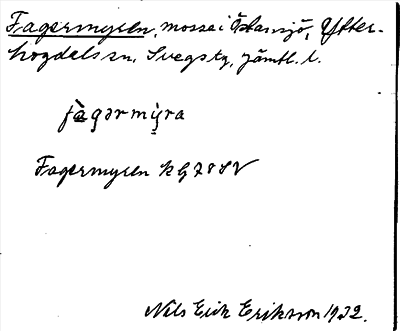 Fagermyren, mosse i Östansjö, Ytter-
hogdals sn, Svegs tg, Jämtl. l.
fàgərmy̬ra
Fagermyren kG78SV
Nils Erik Eriksson 1932.